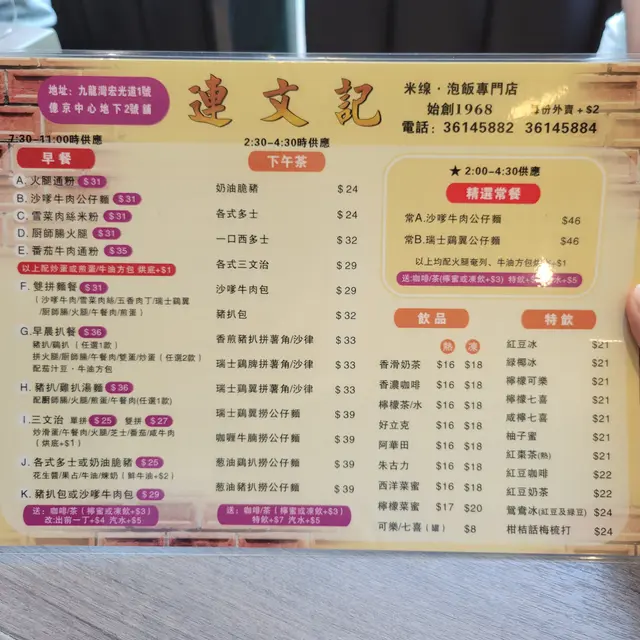 地址：九龍灣宏光道1號
億京中心地下2號舖
連文記
米線·泡飯專門店
始創1968
份外賣+$2
電話：36145882 36145884
7:30-11:00時供應
早餐
A. 火腿通粉 $31
B. 沙嗲牛肉公仔麵 $31
C. 雪菜肉絲米粉 $31
D. 廚師腸火腿 $31
E. 番茄牛肉通粉 $35
以上配炒蛋或煎蛋/牛油方包 烘底+$1
F. 雙拼麵餐 $31
（沙嗲牛肉/雪菜肉絲/五香肉丁/瑞士鷄翼
/廚師腸/火腿/午餐肉/煎蛋）
G. 早晨扒餐 $36
豬扒/鷄扒（任選1款）
拼火腿/廚師腸/午餐肉/雙蛋/炒蛋（任選2款）
配茄汁豆·牛油方包
H. 豬扒/雞扒湯麵 $36
配廚師腸/火腿/煎蛋/午餐肉(任選1款)
I. 三文治 單拼 $25 雙拼 $27
炒滑蛋/午餐肉/火腿/芝士/番茄/咸牛肉
（烘底+$1）
J. 各式多士或奶油脆豬 $25
花生醬/果占/牛油/煉奶（鮮牛油+$2）
K. 豬扒包或沙嗲牛肉包 $29
送：咖啡/茶（檸蜜或凍飲+$3）
改:出前一丁+$4 汽水+$5
2:30-4:30時供應
下午茶
奶油脆豬 $24
各式多士 $24
一口西多士 $32
各式三文治 $29
沙嗲牛肉包 $29
豬扒包 $32
香煎豬扒拼薯角/沙律 $33
瑞士鷄髀拼薯角/沙律 $33
瑞士鷄翼拼薯角/沙律 $33
瑞士鷄翼撈公仔麵 $39
咖喱牛腩撈公仔麵 $39
葱油鷄扒撈公仔麵 $39
葱油豬扒撈公仔麵 $39
送：咖啡/茶（檸蜜或凍飲+$3）
特飲+$7 汽水+$5
★ 2:00-4:30供應
精選常餐
常A. 沙嗲牛肉公仔麵 $46
常B. 瑞士鷄翼公仔麵 $46
以上均配火腿奄列、牛油方包 +$1
送:咖啡/茶(檸蜜或凍飲+$3) 特飲 +$5
飲品
熱 凍
香滑奶茶 $16 $18
香濃咖啡 $16 $18
檸檬茶/水 $16 $18
好立克 $16 $18
阿華田 $16 $18
朱古力 $16 $18
西洋菜蜜 $16 $18
檸檬菜蜜 $17 $20
可樂/七喜（罐） $8
特飲
紅豆冰 $21
綠椰冰 $21
檸檬可樂 $21
檸檬七喜 $21
咸檸七喜 $21
柚子蜜 $21
紅棗茶(熱) $21
紅豆咖啡 $22
紅豆奶茶 $22
鴛鴦冰(紅豆及綠豆) $24
柑桔話梅梳打 $24